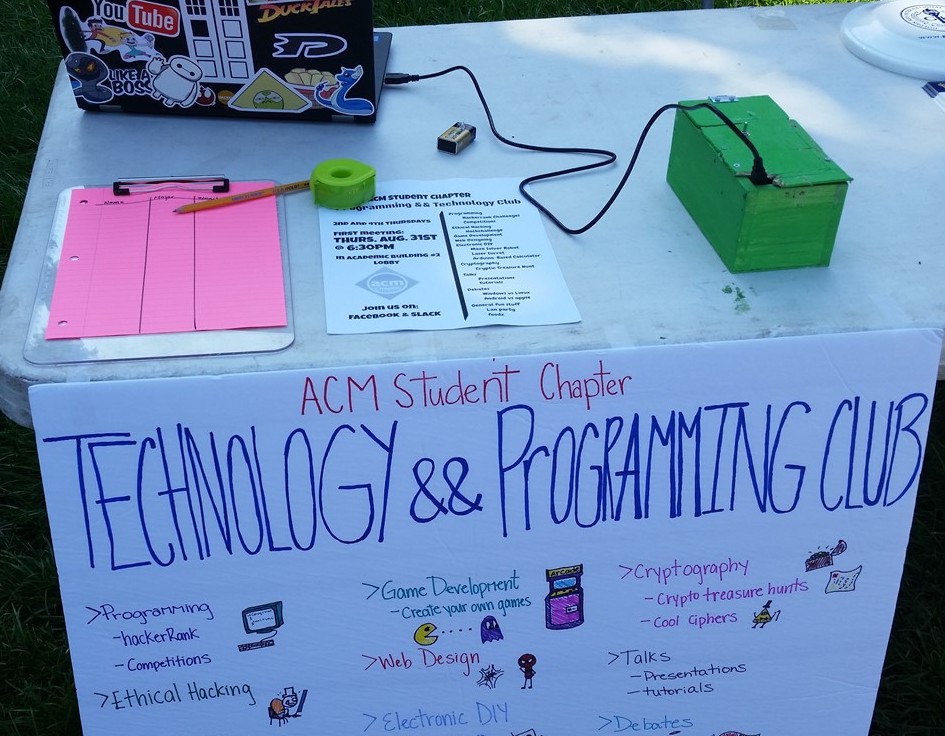 You Tube
DUCKTALES
LIKE A
BOSS
Name
Major
ACM STUDENT CHAPTER
Programming && Technology Club
2ND AND 4TH THURSDAYS
FIRST MEETING:
THURS. AUG. 31ST
@ 6:30PM
IN ACADEMIC BUILDING #2
LOBBY
acm
JOIN US ON:
FACEBOOK & SLACK
Programming
Hackerrank Challenges
Competitions
Ethical Hacking
Hackchallenge
Game Development
Web Designing
Electronic DIY
Maze Solver Robot
Laser Turret
Arduino-Based Calculator
Cryptography
Cryptic Treasure Hunt
Talks
Presentations
Tutorials
Debates
Windows vs Linux
Android vs apple
General fun stuff
Lan party
Foods
ACM Student Chapter
TECHNOLOGY && PROGRAMMING CLUB
>Programming
-hackerRank
-Competitions
>Ethical Hacking
>Game Development
-Create your own games
ARCADE
>Web Design
>Electronic DIY
>Cryptography
-Crypto treasure hunts
-Cool Ciphers
>Talks
-Presentations
-tutorials
>Debates